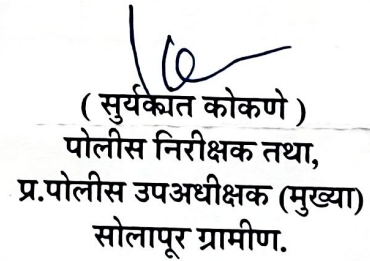 ( सुर्यकांत कोकणे )
पोलीस निरीक्षक तथा,
प्र.पोलीस उपअधीक्षक (मुख्या)
सोलापूर ग्रामीण.